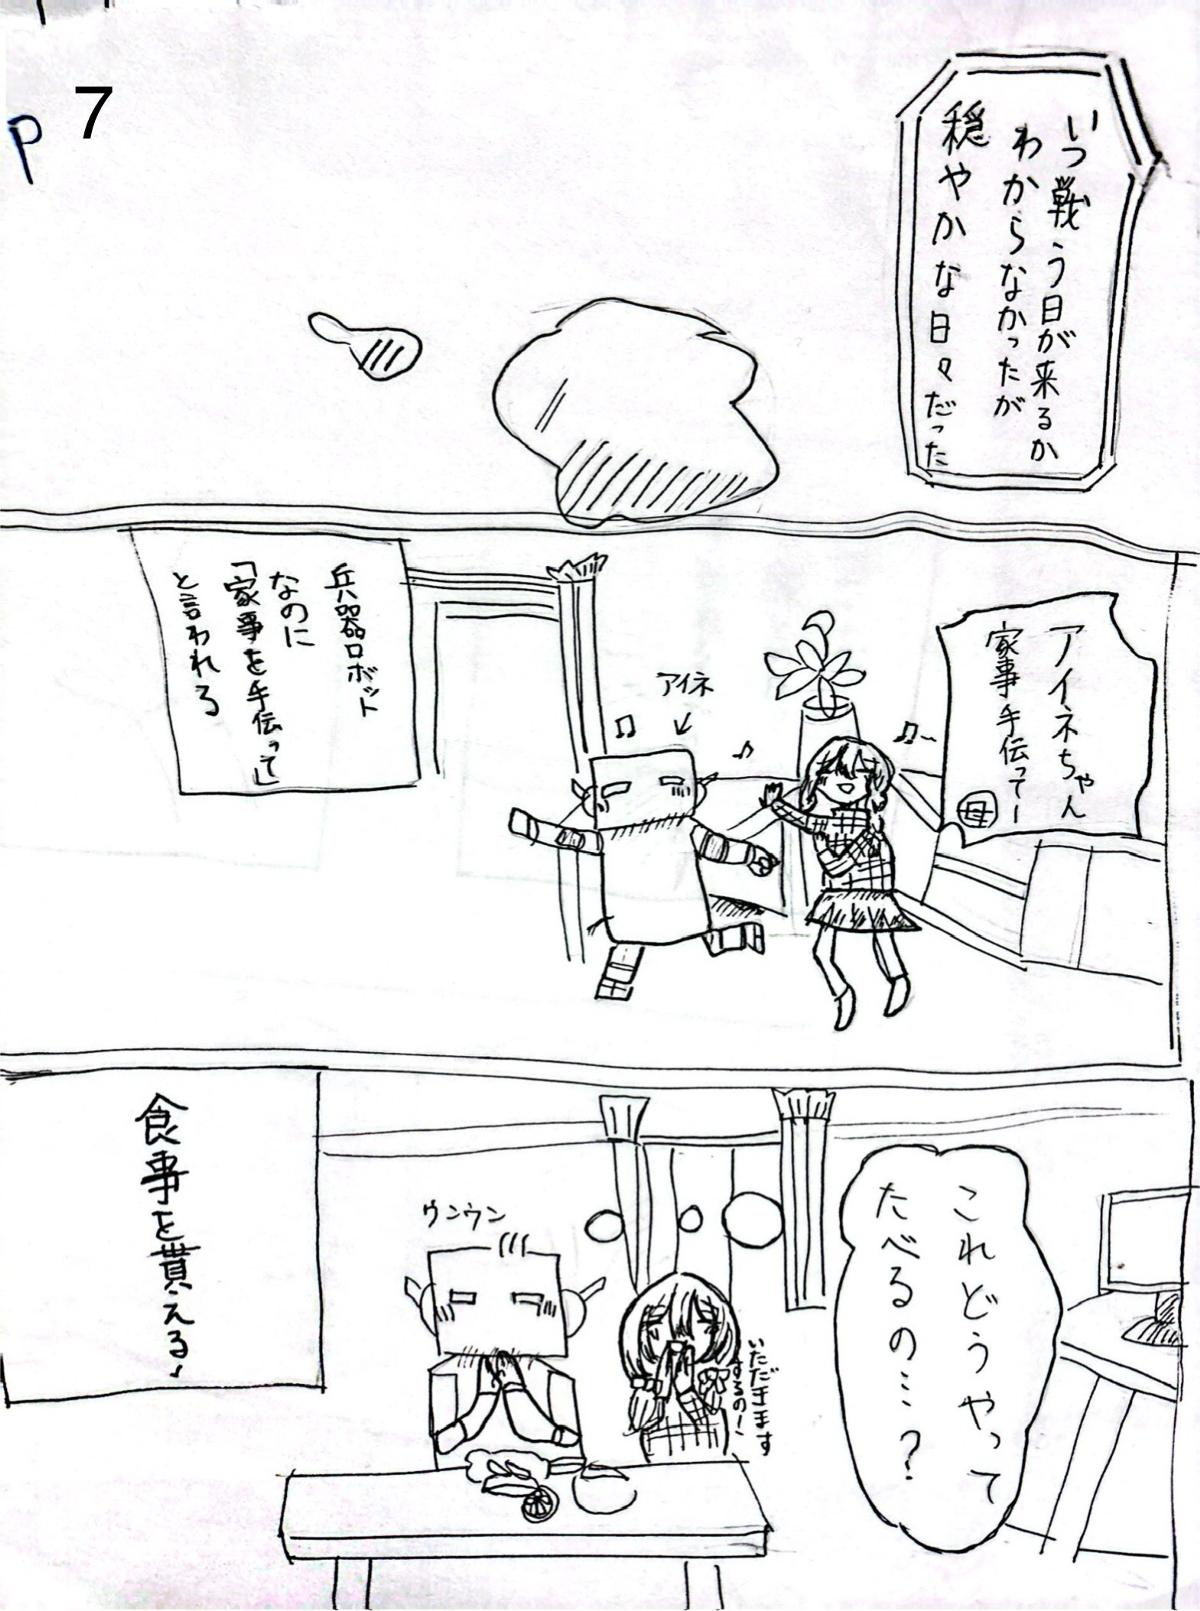 P 7
いつ戦う日が来るか
わからなかったが
穏やかな日々だった
アイネちゃん
家事手伝ってー
母
アイネ
兵器ロボット
なのに
「家事を手伝って」
と言われる
これどうやって
たべるの…?
いただきます
するのー!
ウンウン
食事を貰える!